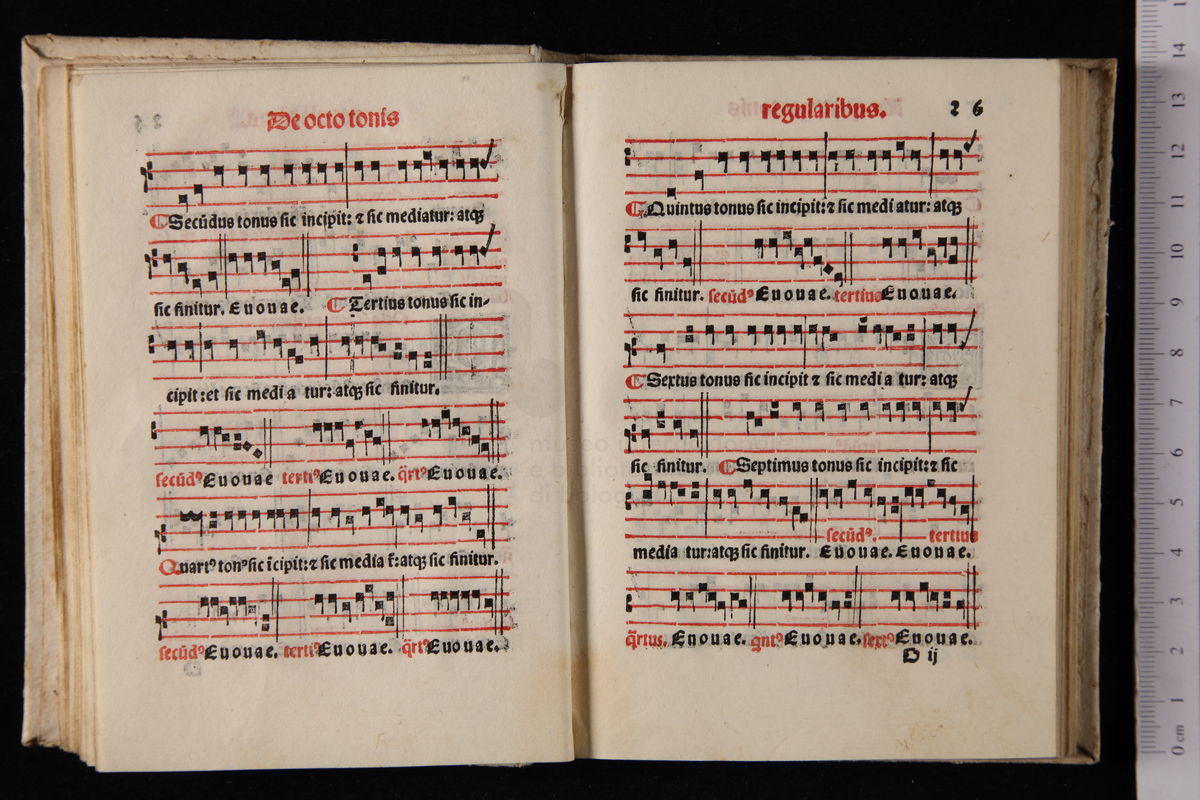 De octo tonis
Secũdus tonus sic incipit: ⁊ sic mediatur: atq̃
sic finitur. Euouae. Tertius tonus sic in-
cipit: et sic media tur: atq̃ sic finitur.
secũdꝰ Euouae tertiꝰ Euouae. q̃rtꝰ Euouae.
Quartꝰ tonꝰ sic ĩcipit: ⁊ sic media t̃: atq̃ sic finitur.
secũdꝰ Euouae. tertiꝰ Euouae. q̃rtꝰ Euouae.
regularibus. 26
Quintus tonus sic incipit: ⁊ sic medi atur: atq̃
sic finitur. secũdꝰ Euouae. tertius Euouae.
Sextus tonus sic incipit ⁊ sic medi a tur: atq̃
sic finitur. Septimus tonus sic incipit: ⁊ sic
secũdꝰ. tertius
media tur: atq̃ sic finitur. Euouae. Euouae.
q̃rtus. Euouae. qntꝰ Euouae. sextꝰ Euouae.
D ij
museo
e biblio
di bologna
0 cm 1 2 3 4 5 6 7 8 9 10 11 12 13 14